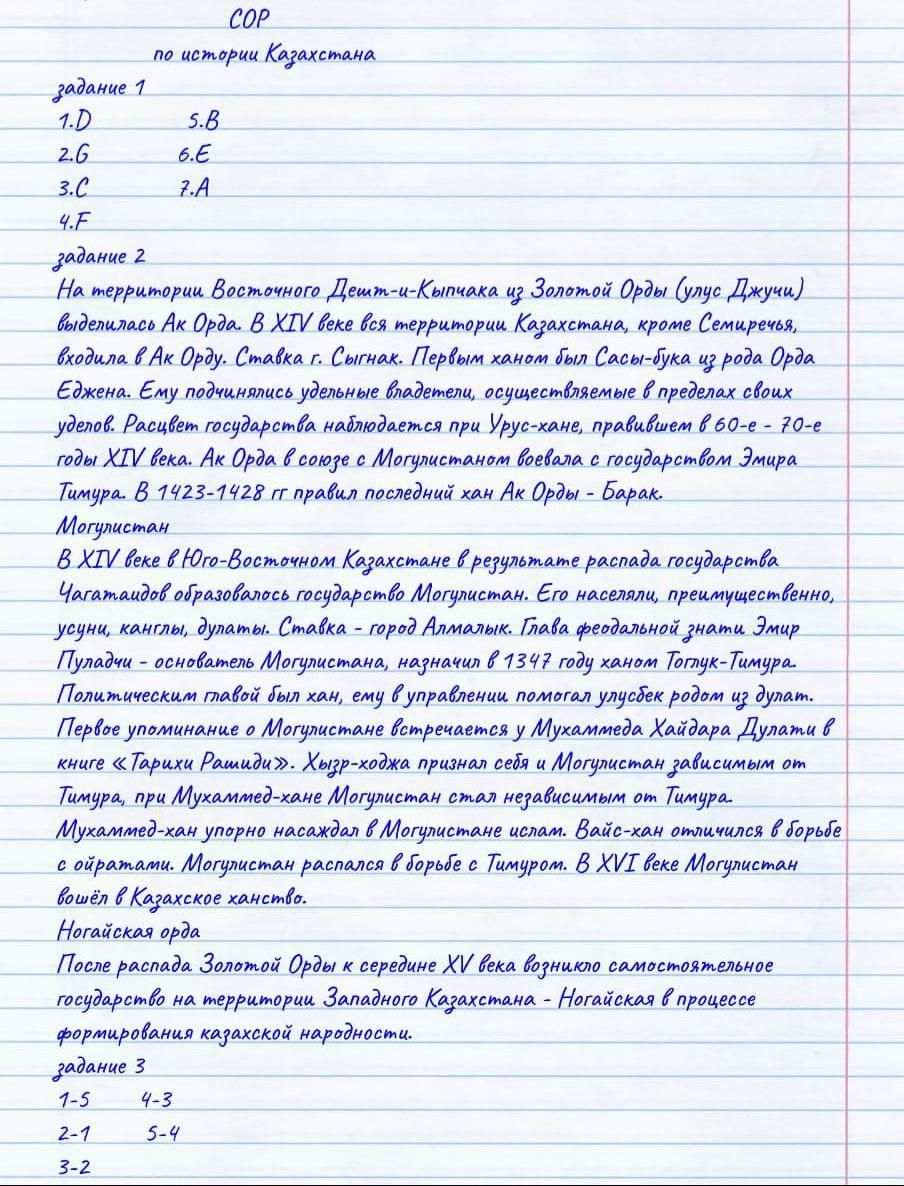 СОР
по истории Казахстана
задание 1
1.D 5.B
2.G 6.E
3.C 7.A
4.F
задание 2
На территории Восточного Дешт-и-Кыпчака из Золотой Орды (улус Джучи)
выделилась Ак Орда. В XIV веке вся территории Казахстана, кроме Семиречья,
входила в Ак Орду. Ставка г. Сыгнак. Первым ханом был Сасы-бука из рода Орда
Еджена. Ему подчинялись удельные владетели, осуществляемые в пределах своих
уделов. Расцвет государства наблюдается при Урус-хане, правившем в 60-е - 70-е
годы XIV века. Ак Орда в союзе с Могулистаном воевала с государством Эмира
Тимура. В 1423-1428 гг правил последний хан Ак Орды - Барак.
Могулистан
В XIV веке в Юго-Восточном Казахстане в результате распада государства
Чагатаидов образовалось государство Могулистан. Его населяли, преимущественно,
усуни, канглы, дулаты. Ставка - город Алмалык. Глава феодальной знати Эмир
Пуладчи - основатель Могулистана, назначил в 1347 году ханом Тоглук-Тимура.
Политическим главой был хан, ему в управлении помогал улусбек родом из дулат.
Первое упоминание о Могулистане встречается у Мухаммеда Хайдара Дулати в
книге «Тарихи Рашиди». Хызр-ходжа признал себя и Могулистан зависимым от
Тимура, при Мухаммед-хане Могулистан стал независимым от Тимура.
Мухаммед-хан упорно насаждал в Могулистане ислам. Вайс-хан отличился в борьбе
с ойратами. Могулистан распался в борьбе с Тимуром. В XVI веке Могулистан
вошёл в Казахское ханство.
Ногайская орда
После распада Золотой Орды к середине XV века возникло самостоятельное
государство на территории Западного Казахстана - Ногайская в процессе
формирования казахской народности.
задание 3
1-5 4-3
2-1 5-4
3-2